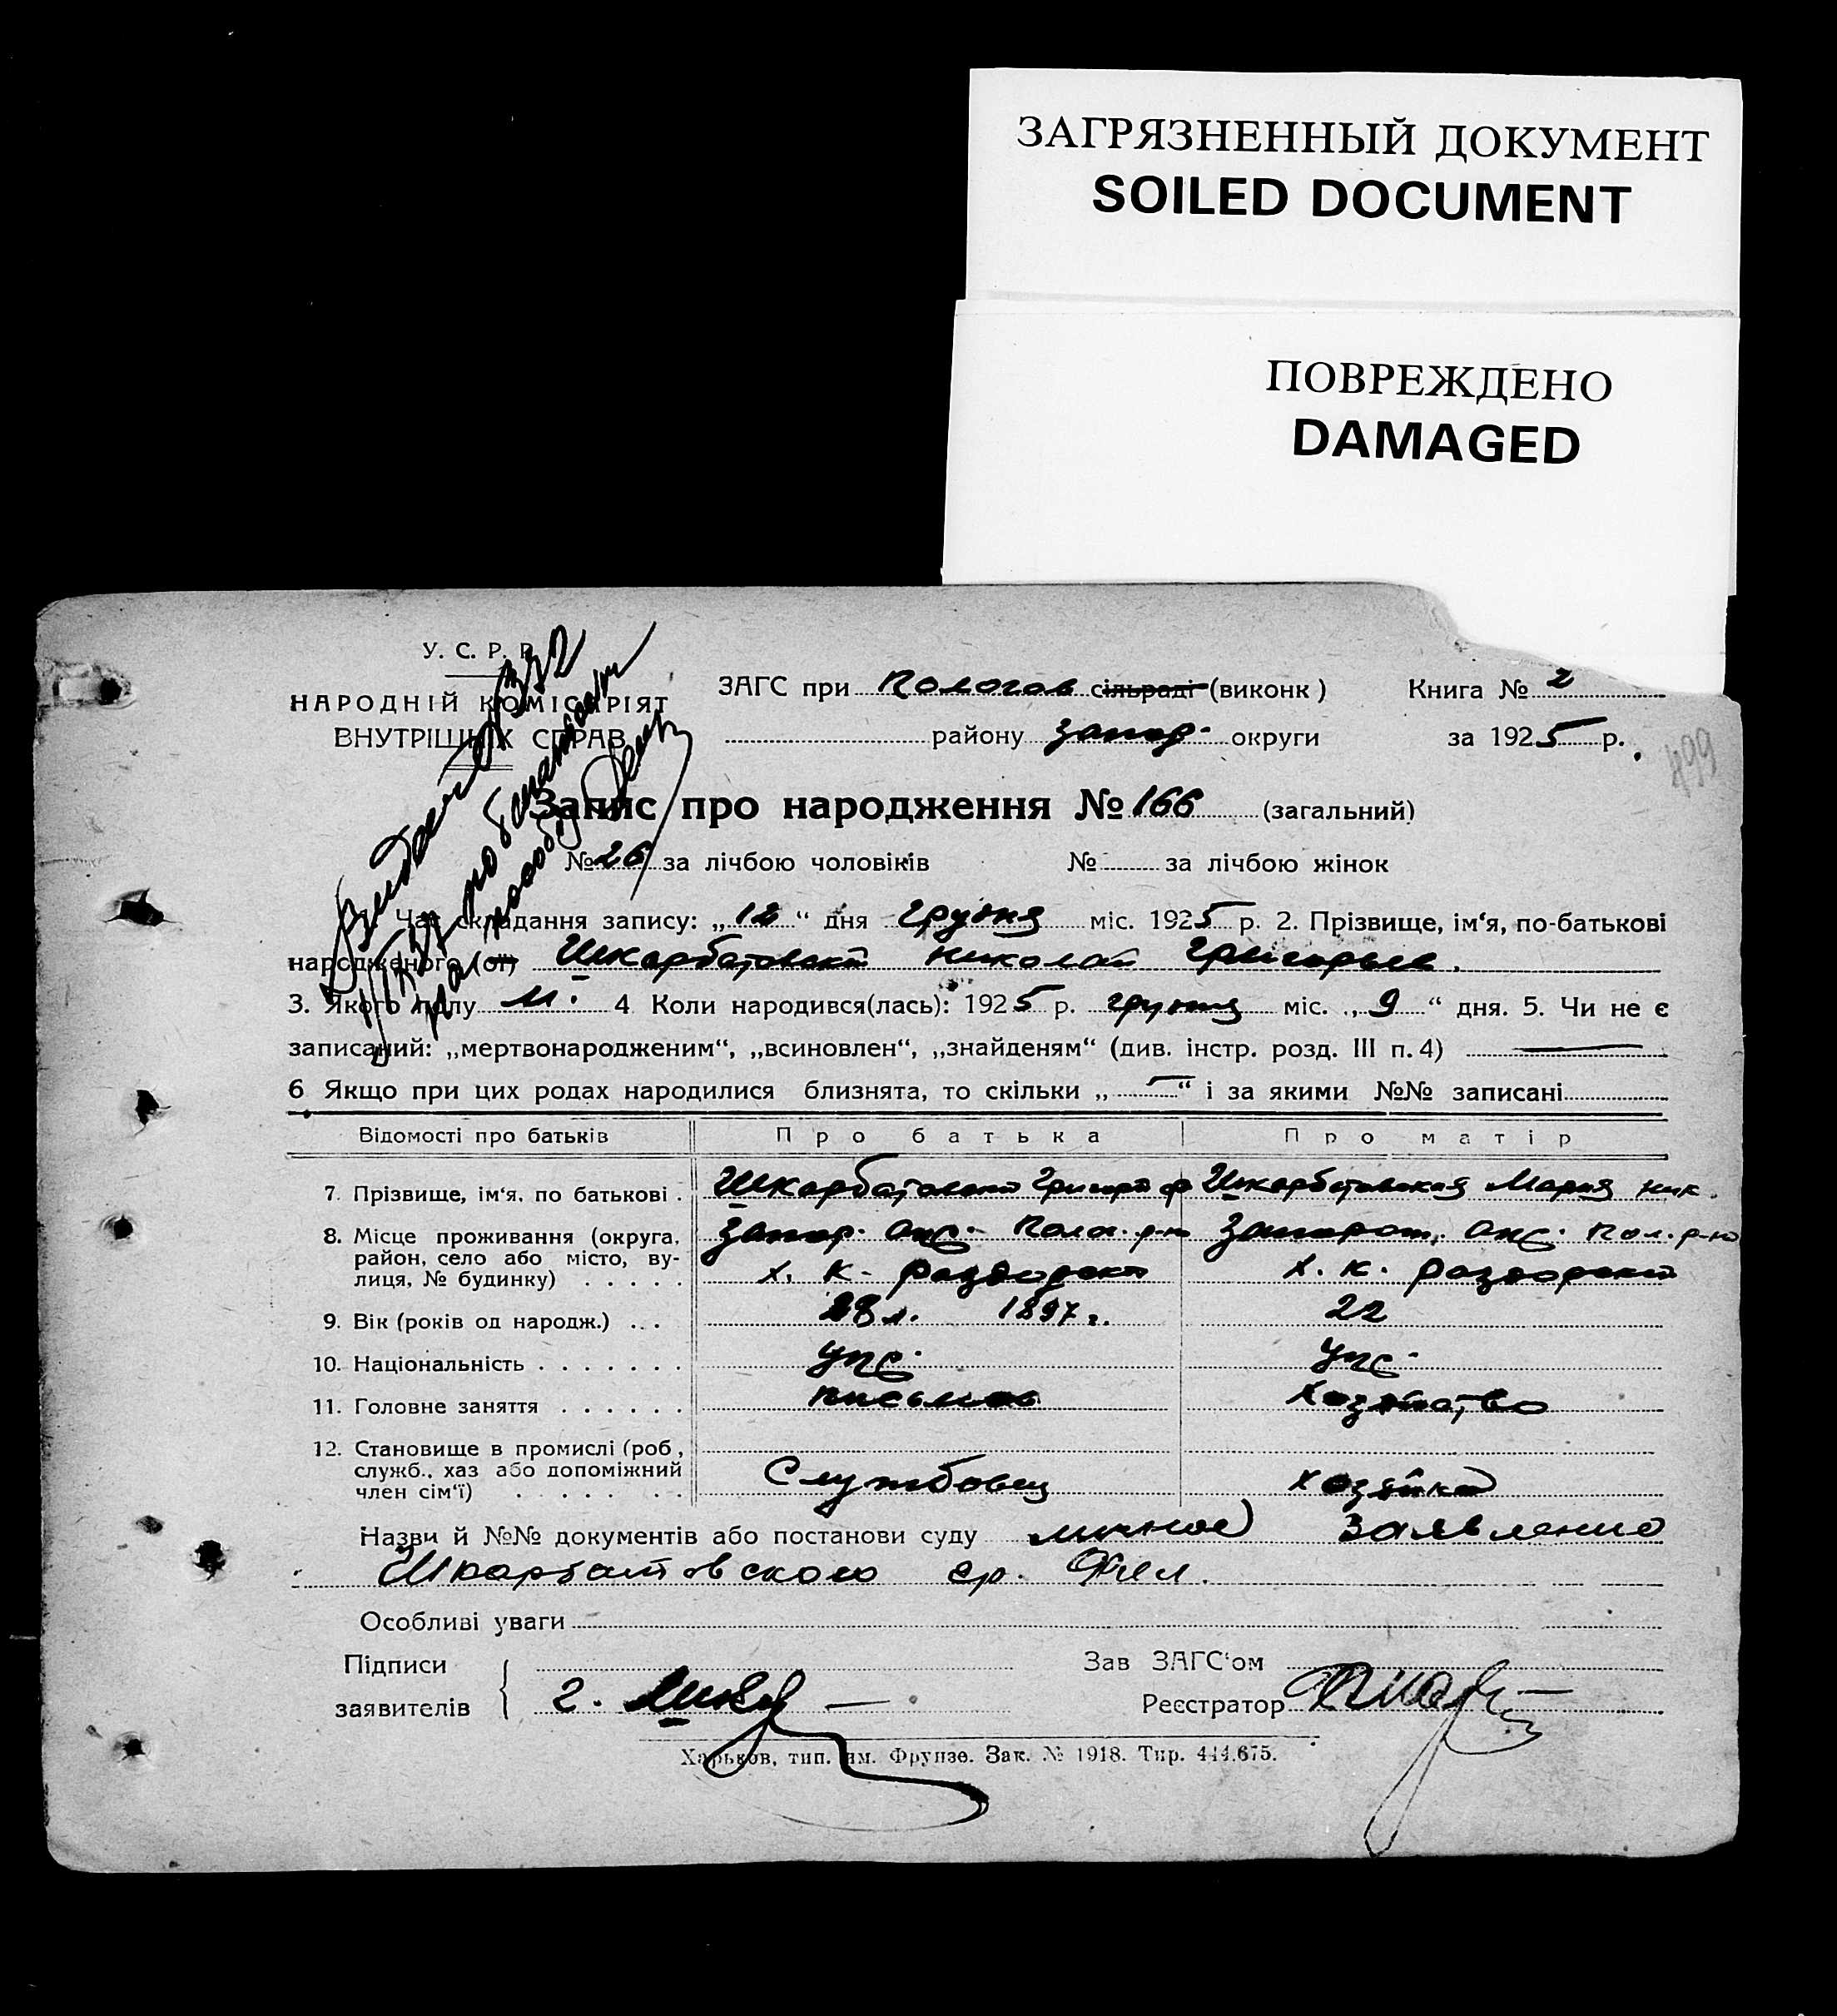 ЗАГРЯЗНЕННЫЙ ДОКУМЕНТ
SOILED DOCUMENT
ПОВРЕЖДЕНО
DAMAGED
У. С. Р. Р.
НАРОДНІЙ КОМІСАРІЯТ
ВНУТРІШНІХ СПРАВ
ЗАГС при Пологов сільраді (виконк)
району запор. округи
Книга № 2
за 1925 р.
499
Запис про народження № 166 (загальний)
№ 26 за лічбою чоловіків № за лічбою жінок
Час складання запису: „12“ дня грудня міс. 1925 р. 2. Прізвище, ім‘я, по-батькові
народженого (ої) Шкарбатовский Николай Григорьев.
3. Якого полу М. 4 Коли народився(лась): 1925 р. грудня міс. „9“ дня. 5. Чи не є
записаний: „мертвонародженим“, „всиновлен“, „знайденям“ (див. інстр. розд. III п. 4) —
6 Якщо при цих родах народилися близнята, то скільки „—“ і за якими №№ записані
Відомості про батьків Про батька Про матір
7. Прізвище, ім‘я, по батькові . Шкарбатовский Григорий Ф Шкарбатовская Мария Ник.
8. Місце проживання (округа, район, село або місто, вулиця, № будинку) . . . . .
Запор. окр. Полог. р-н Запорож. окр. Пол. р-н
х. К. Раздорский х. К. Раздорский
9. Вік (років од народж.) . . . 28 л. 1897 г. 22
10. Національність . . . . . . . укр. укр.
11. Головне заняття . . . . . . письмов хозяйство
12. Становище в промислі (роб., служб., хаз або допоміжний член сім‘ї) . . . . . .
Службовец хозяйка
Назви й №№ документів або постанови суду личное заявление
Шкарбатовского Гр. Фил.
Особливі уваги
Підписи
заявителів
2.
Зав ЗАГС‘ом
Реєстратор
Харьков, тип. им. Фрунзе. Зак. № 1918. Тир. 444.675.